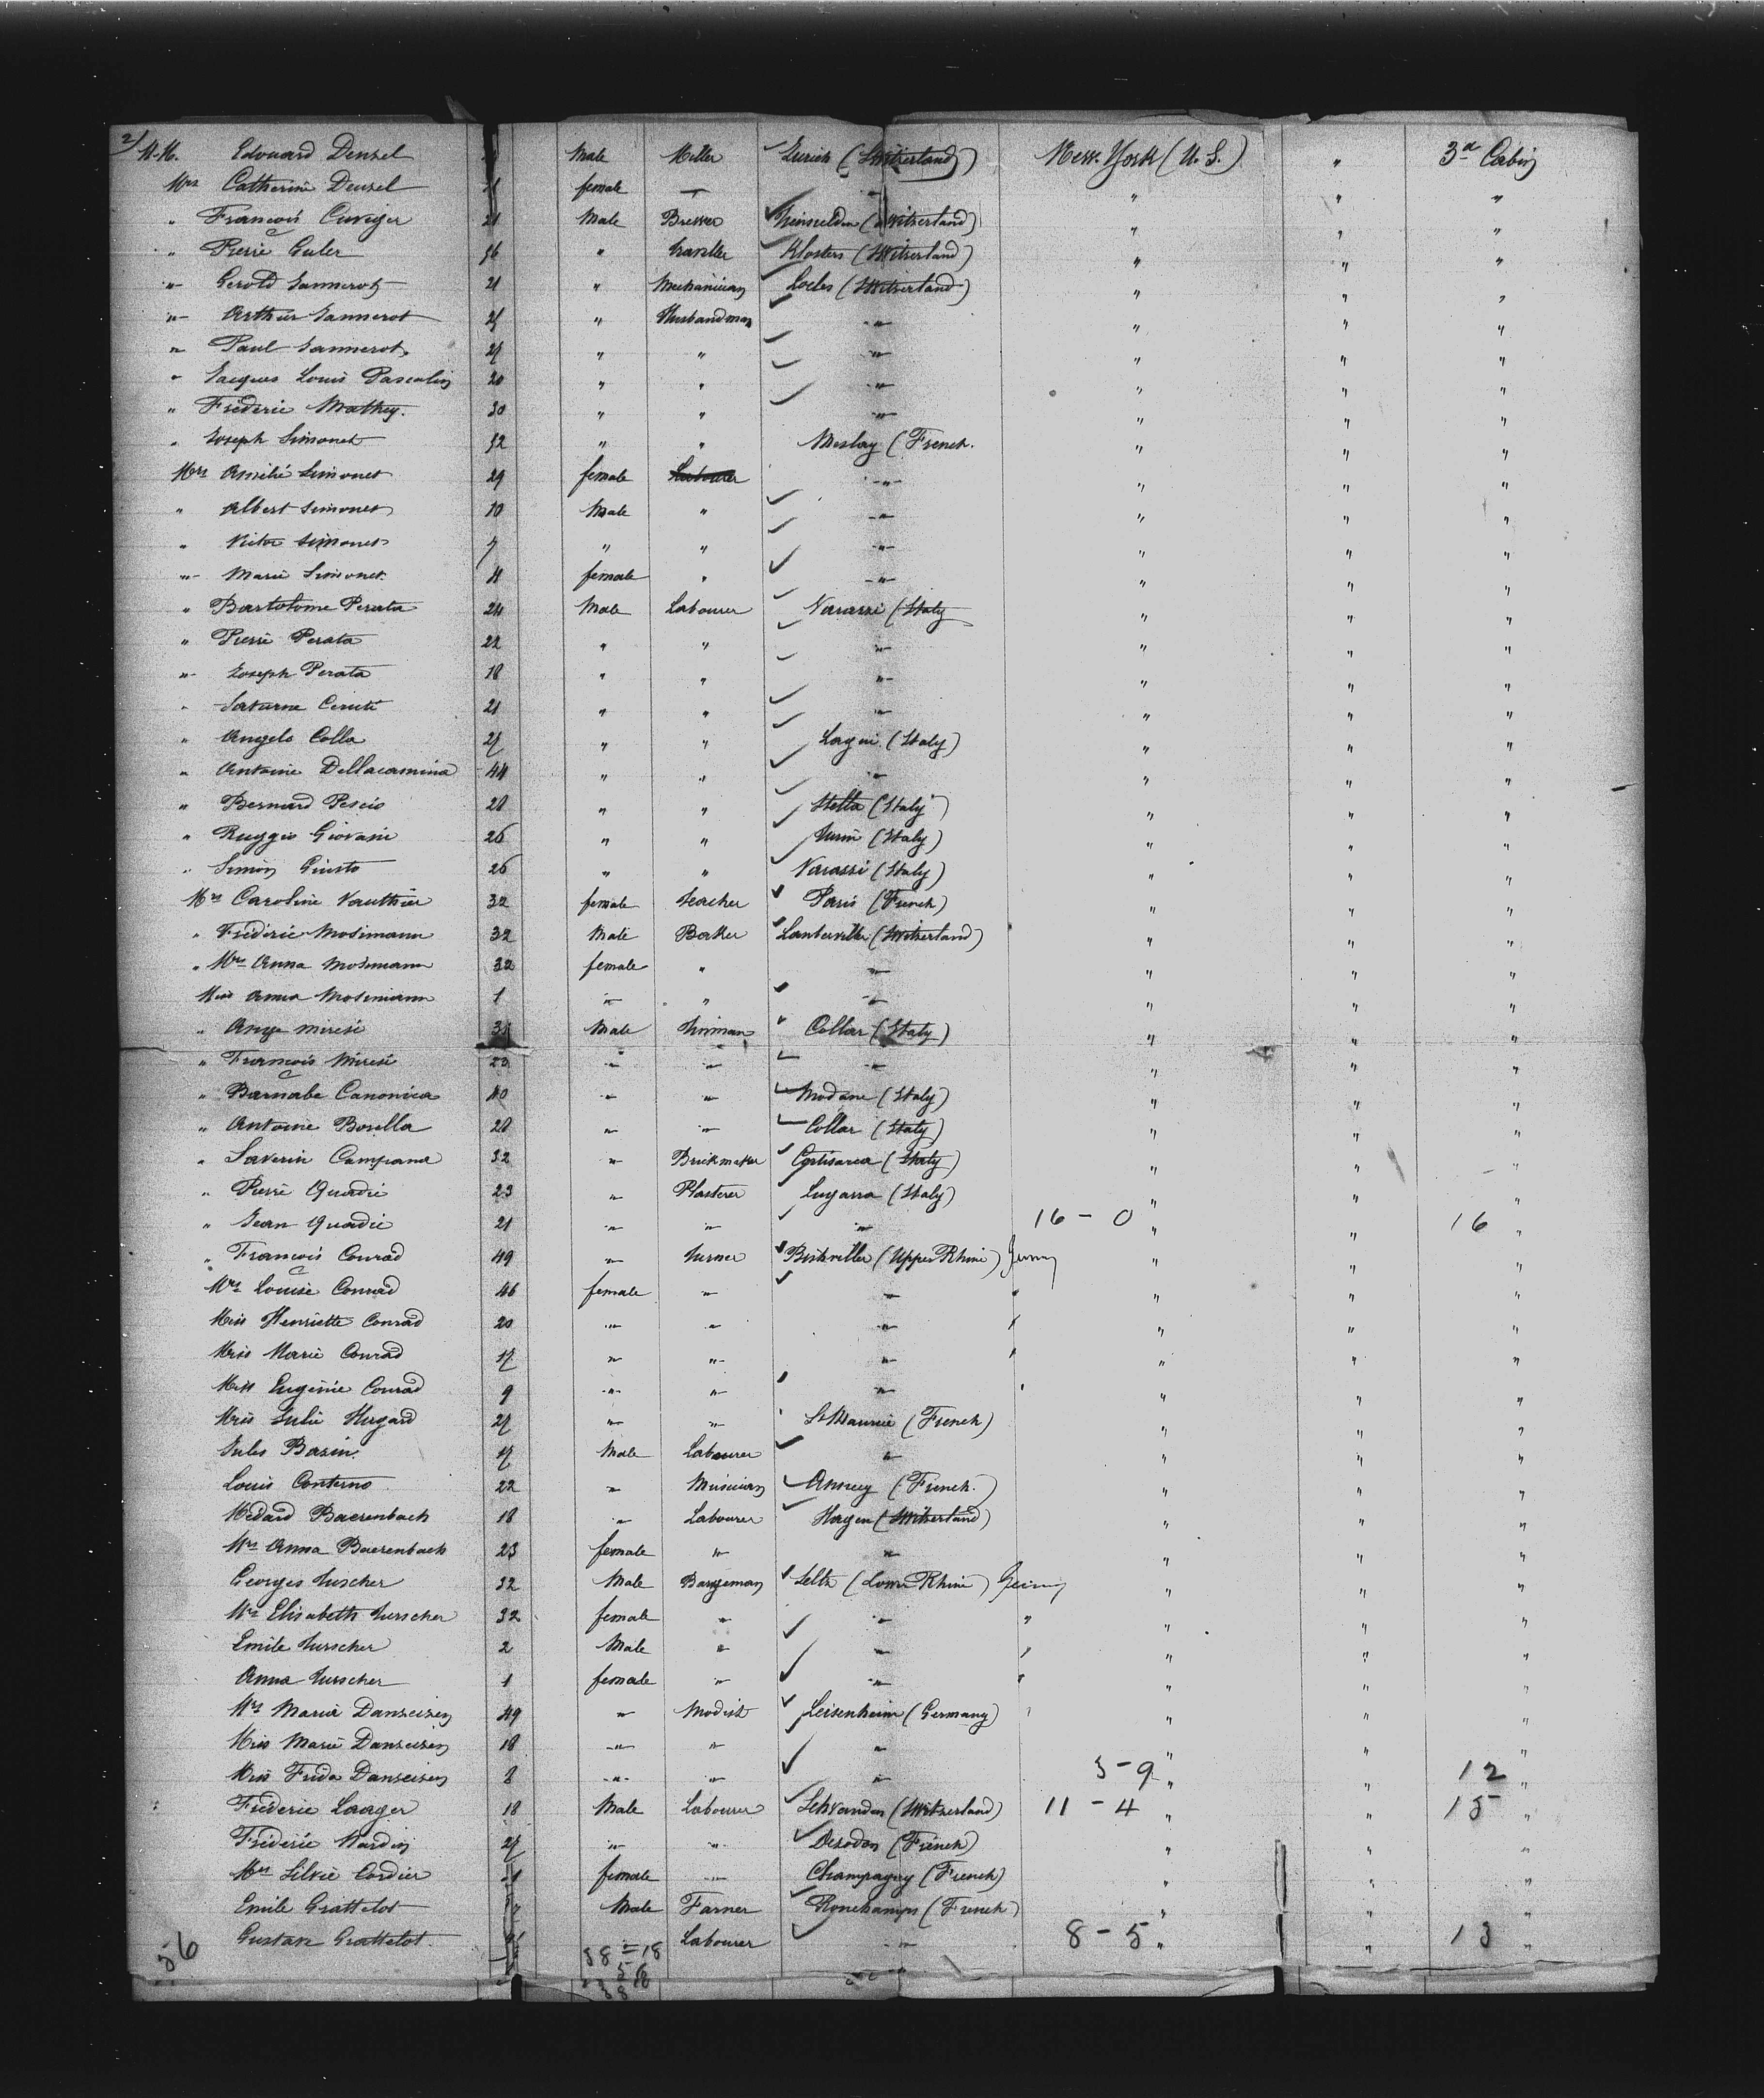 2/ M.M. Edouard Denzel Male Miller Zurich (Switzerland) New. York (U. S.) " 3d Cabin
Mrs Catherine Denzel female — " " " "
" François Cuviger 21 Male Brewer (Switzerland) " " "
" Pierre Guler 56 " Klosters (Switzerland) " " "
" Gerold Jannerot 21 " Mechanician Locles (Switzerland) " " "
" Arthur Jannerot " Husbandman " " " "
" Paul Jannerot 27 " " " " " "
" Jacques Louis Pascalin 20 " " " " " "
" Fréderic Mathey. 30 " " " " " "
" Joseph Simonet 32 " " Meslay (French. " " "
Mrs Amélie Simonet 29 female Labourer " " " "
" Albert Simonet 10 Male " " " " "
" Victor Simonet 7 " " " " " "
" Marie Simonet 4 female " " " " "
" Bartolome Perata 24 Male Labourer Varazzi (Italy " " "
" Pierre Perata 22 " " " " " "
" Joseph Perata 18 " " " " " "
" Saturne Ceruti 21 " " " " " "
" Angelo Colla 27 " " Lagni (Italy) " " "
" Antoine Dellacamina 44 " " " " " "
" Bernard Pescio 28 " " Stella (Italy) " " "
" Ruggio Giovani 26 " " Turin (Italy) " " "
" Simon Giusto 26 " " Varazzi (Italy) " " "
Mrs Caroline Vauthier 32 female teacher Paris (French) " " "
" Fréderic Mosimann 32 Male Baker Lanterville (Switzerland) " " "
" Mrs Anna Mosimann 32 female " " " " "
Miss Anna Mosimann 1 " " " " " "
" Ange Miresi Male Collar (Italy) " " "
" François Miresi 23 " " " " " "
" Barnabe Canonica 40 " " Modane (Italy) " " "
" Antoine Borella 28 " " Collar (Italy) " " "
" Saverin Campana 32 " Brickmaker (Italy) " " "
" Pierre Quadri 23 " Plasterer Lugarra (Italy) " " "
" Jean Quadri 21 " " " 16 - 0 " " 16 "
" François Conrad 49 " Turner Bishviller (Upper Rhine) Germy " " "
Mrs Louise Conrad 46 female " " " " " "
Miss Henriette Conrad 20 " " " " " " "
Miss Marie Conrad 17 " " " " " " "
Miss Eugénie Conrad 9 " " " " " " "
Miss Julie Hugard 27 " " St Maurice (French) " " "
Jules Bazin. 17 Male Labourer " " " "
Louis Conterno 22 " Musician Annecy (French.) " " "
Médard Baerenbach 18 " Labourer Hagen (Switzerland) " " "
Mrs Anna Baerenbach 23 female " " " " "
Georges Turscher 32 Male Bargeman Seltz (Lower Rhine) Germy " " "
Mrs Elisabeth Turscher 32 female " " " " " "
Emile Turscher 2 Male " " " " " "
Anna Turscher 1 female " " " " " "
Mrs Maria Danzeisen 49 " Modist Geisenheim (Germany) " " "
Miss Marie Danzeisen 18 " " " " " "
Miss Frida Danzeisen 8 " " " 3 - 9 " " 12 "
Fréderic Laager 18 Male Labourer Schvanden (Switzerland) 11 - 4 " " 15 "
Fréderic Nardin 27 " " Dezodan (French) " " "
Mrs Silvie Cordier female " Champagny (French) " " "
Emile Grattelot Male Farmer Ronchamps (French) " " "
Gustave Grattelot Labourer " 8 - 5 " " 13 "
56 38 = 18
56
38